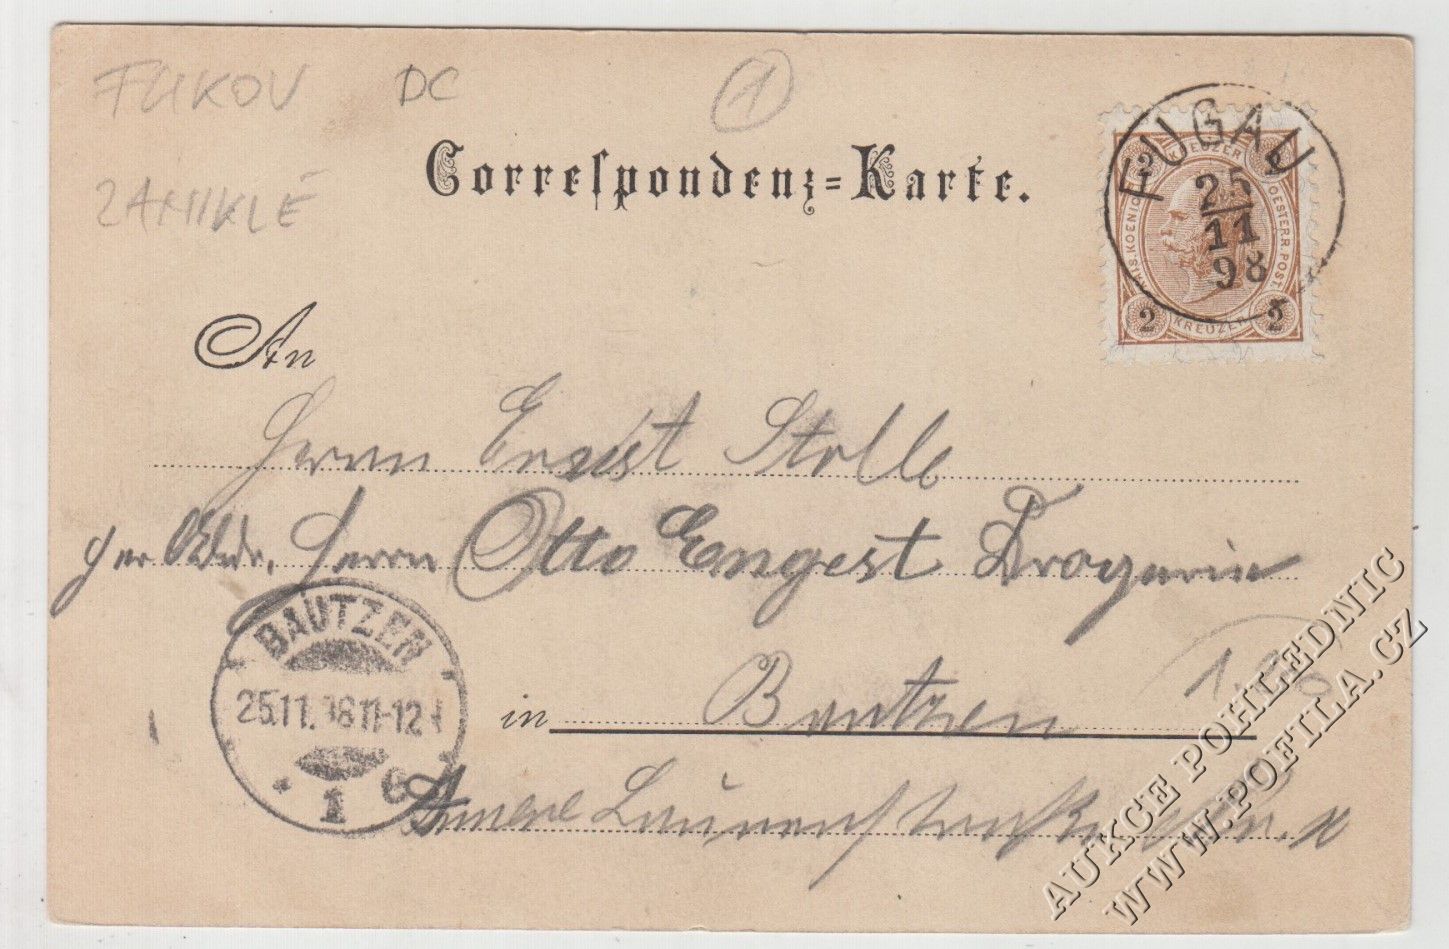 FUKOV DC 1
ZANIKLÉ
Correspondenz-Karte.
FUGAU
25
11
98
2 KREUZER 2
KAIS. KOENIGL. OESTERR. POST
2 KREUZER 2
An
Herrn Ernst Stolle
per Adr. Herrn Otto Engest Drogerie
BAUTZEN
25.11. 98 11-12
1
in Bautzen
Innere Lauenstraße
AUKCE POHLEDNIC
WWW.POFILA.CZ